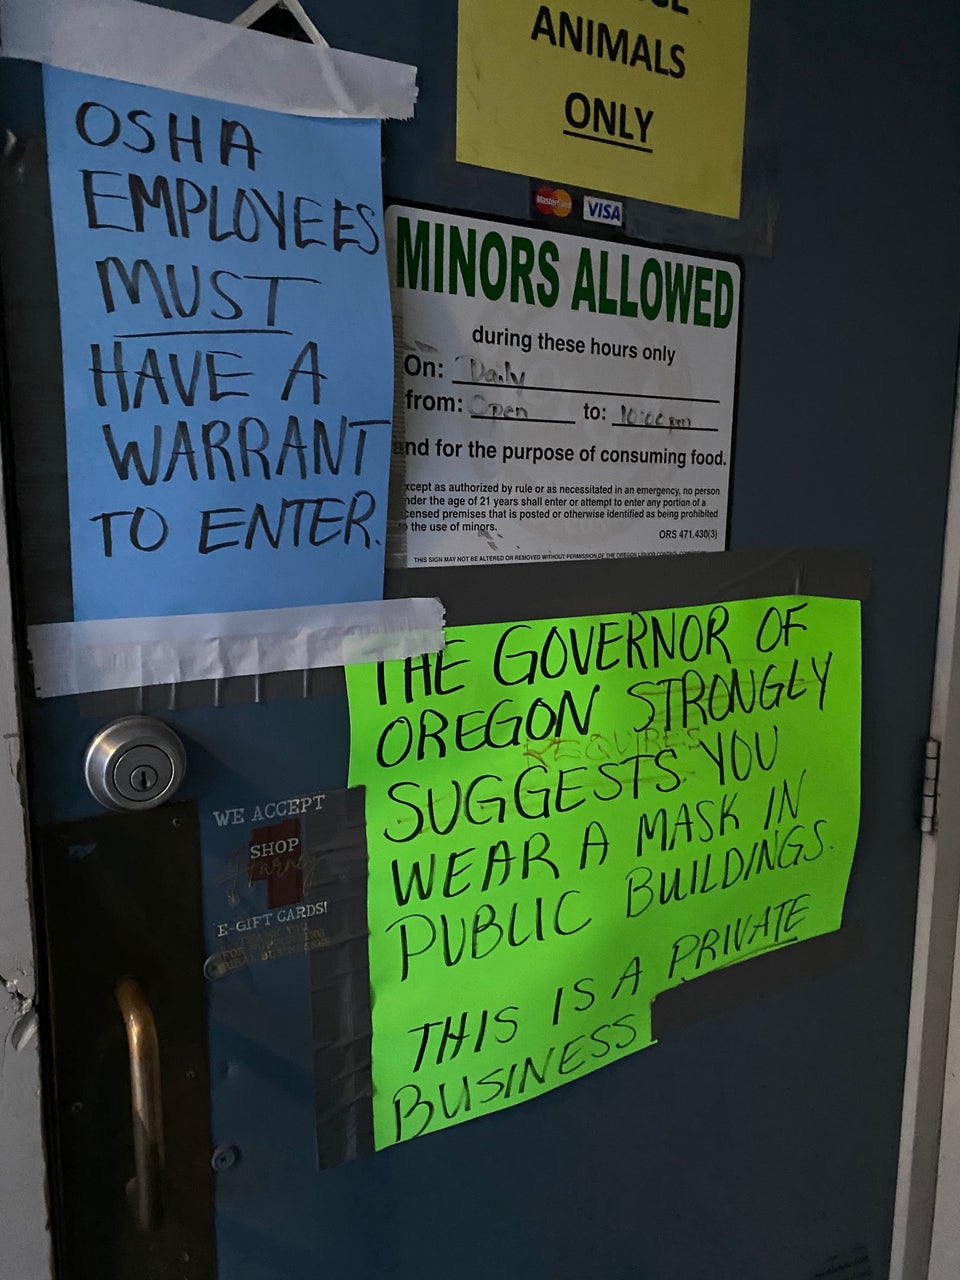 ANIMALS
ONLY
OSHA
EMPLOYEES
MUST
HAVE A
WARRANT
TO ENTER.
MasterCard
VISA
MINORS ALLOWED
during these hours only
On: Daily
from: Open to: 10:00 pm
and for the purpose of consuming food.
xcept as authorized by rule or as necessitated in an emergency, no person
nder the age of 21 years shall enter or attempt to enter any portion of a
censed premises that is posted or otherwise identified as being prohibited
o the use of minors.
ORS 471.430(3)
THIS SIGN MAY NOT BE ALTERED OR REMOVED WITHOUT PERMISSION OF THE OREGON LIQUOR CONTROL
THE GOVERNOR OF
OREGON STRONGLY
REQUIRES
SUGGESTS YOU
WEAR A MASK IN
PUBLIC BUILDINGS.
THIS IS A PRIVATE
BUSINESS.
WE ACCEPT
SHOP
Harney
E-GIFT CARDS!
THANK YOU
FOR SUPPORTING
RURAL BUSINESSES